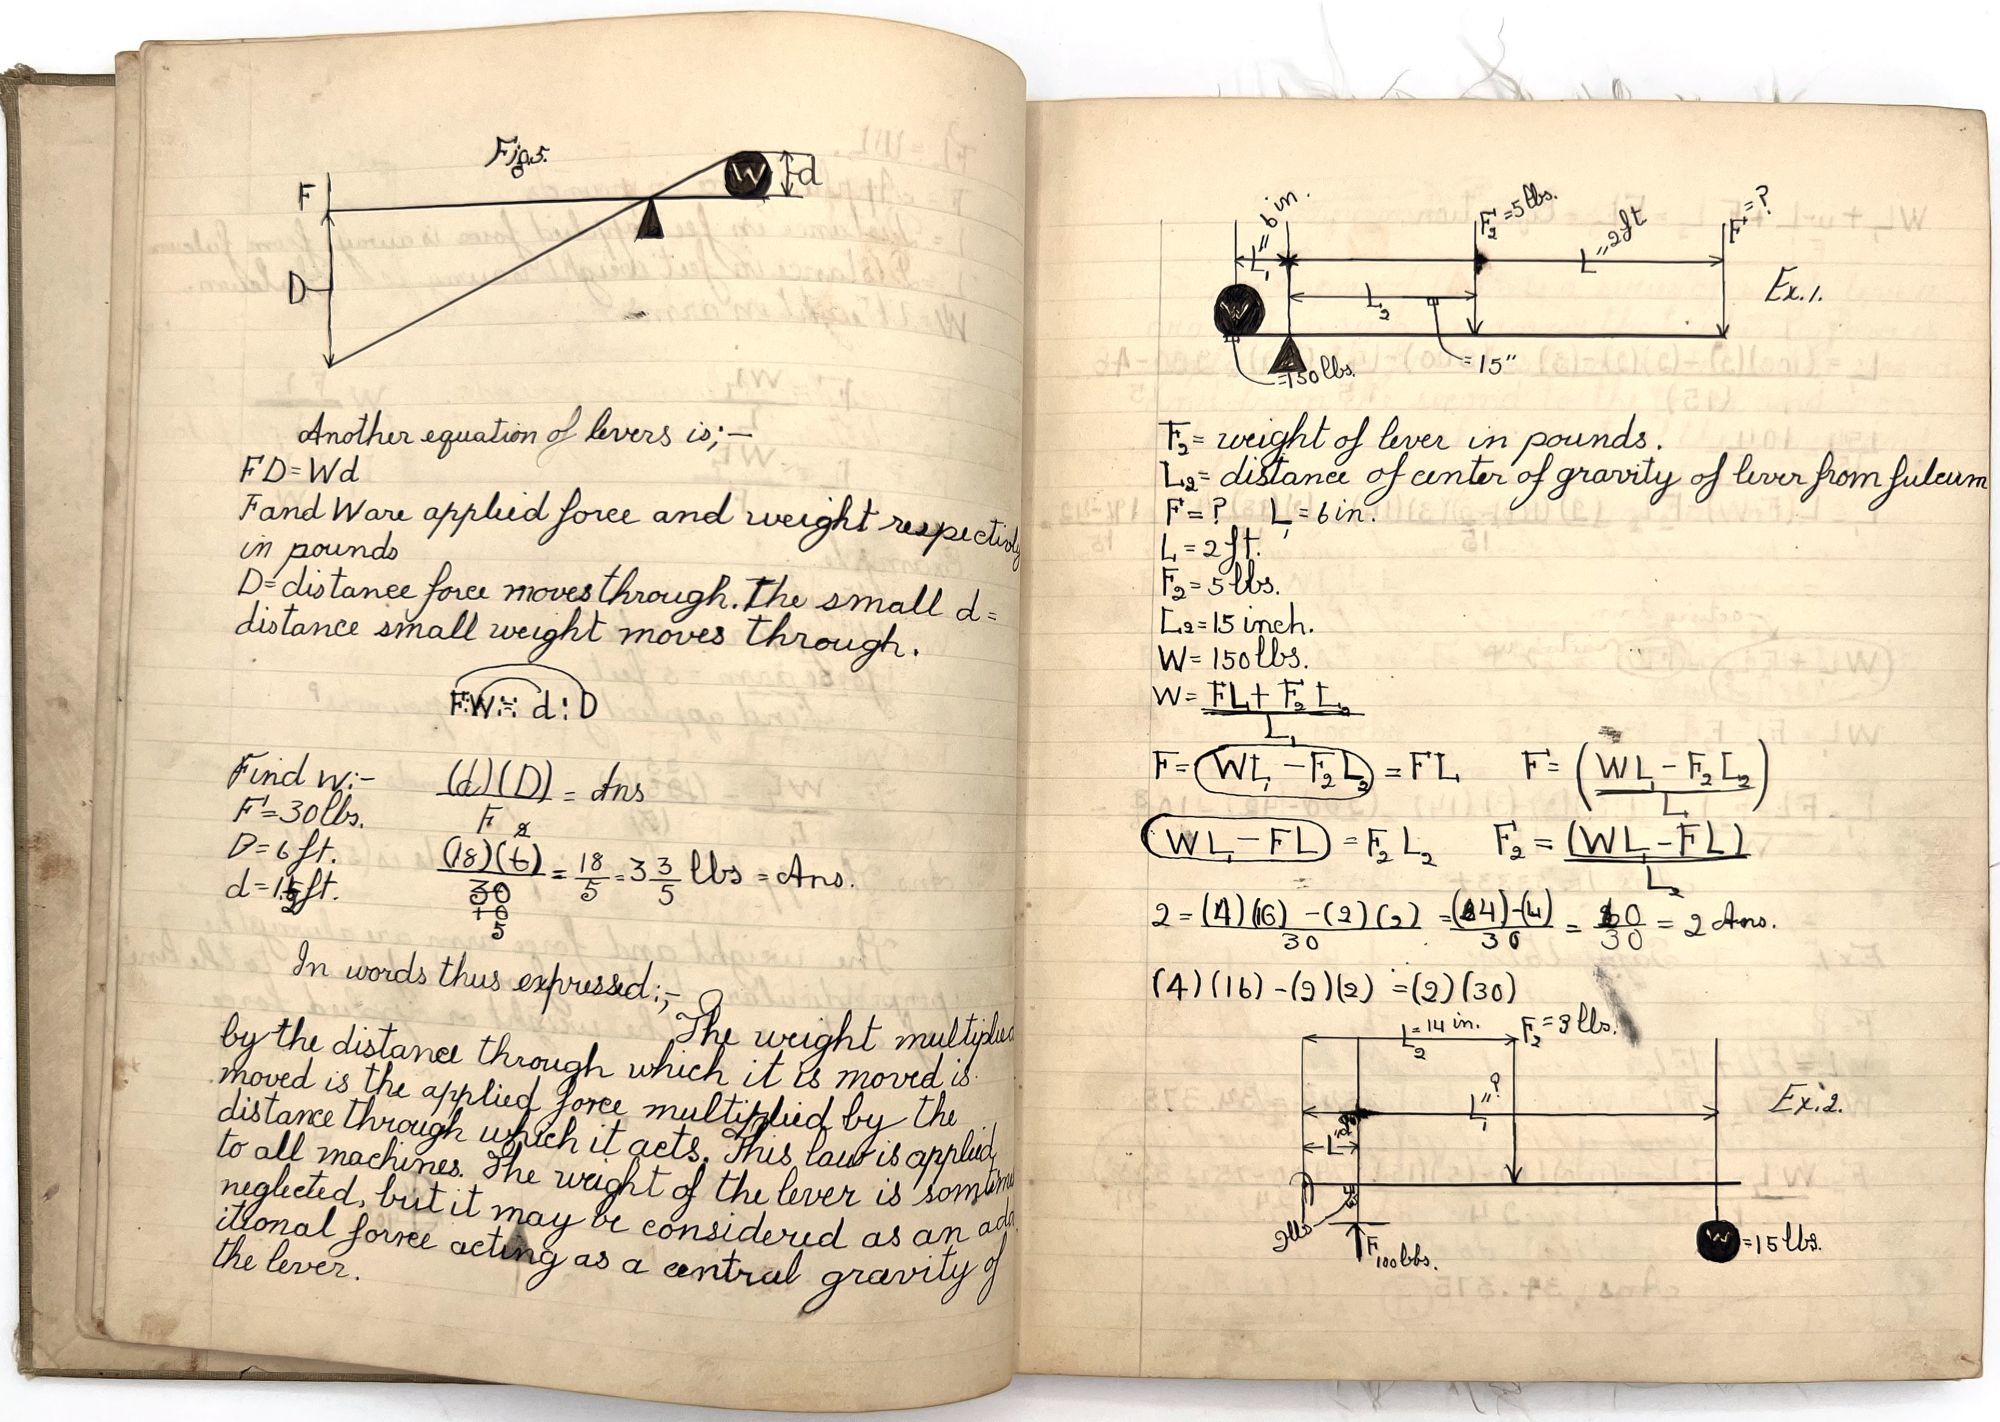 Fig. 5.
F
W
d
D
Another equation of levers is;—
FD=Wd
F and W are applied force and weight respectivly
in pounds
D=distance force moves through. The small d=
distance small weight moves through.
F:W:: d:D
Find W:-
(d)(D) = Ans
F
F=30lbs.
D=6ft.
(18)(6) = 18 = 3 3 lbs = Ans.
30 5 5
10
5
d=1.5ft.
In words thus expressed:;-
The weight multiplied
by the distance through which it is moved is
moved is the applied force multiplied by the
distance through which it acts. This law is applied
to all machines. The weight of the lever is sometime
neglected, but it may be considered as an add
itional force acting as a central gravity of
the lever.
L₁=6in.
F₂=5lbs.
L=2ft
F=?
Ex.1.
L₂
W
=150lbs.
=15"
F₂= weight of lever in pounds.
L₂= distance of center of gravity of lever from fulcum
F=? L₁=6in.
L=2ft.
F₂=5lbs.
L₂=15inch.
W=150lbs.
W= FL+F₂L₂
L₁
F=(WL₁-F₂L₂)=FL F=(WL₁-F₂L₂)
L
(WL₁-FL)=F₂L₂ F₂=(WL₁-FL)
L₂
2=(4)(16)-(2)(2) =(64)-(4) = 60 = 2 Ans.
30 30 30
(4)(16)-(2)(2)=(2)(30)
L₂=14in.
F₂=3lbs.
L₁=?
Ex.2.
F
100lbs.
W
=15lbs.